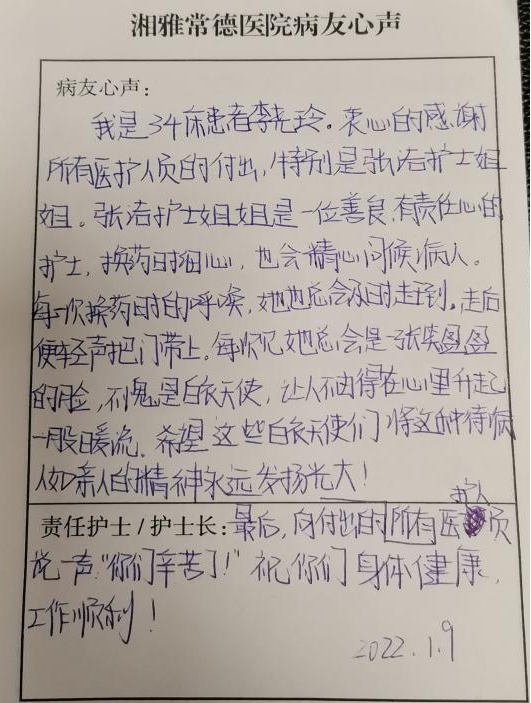 湘雅常德医院病友心声
病友心声：
我是34床患者李先玲。衷心的感谢
所有医护人员的付出，特别是张洁护士姐
姐。张洁护士姐姐是一位善良，有责任心的
护士，换药时细心，也会精心问候病人。
每一次换药时的呼唤，她也总会及时走到。走后
便轻声把门带上。每次见她总会是一张笑盈盈
的脸，不愧是白衣天使，让人不由得在心里升起
一股暖流。希望这些白衣天使们将这种待病
人如亲人的精神永远发扬光大！
护人
责任护士/护士长：最后，向付出的所有医员
说一声“你们辛苦了！”祝你们身体健康，
工作顺利！
2022.1.9